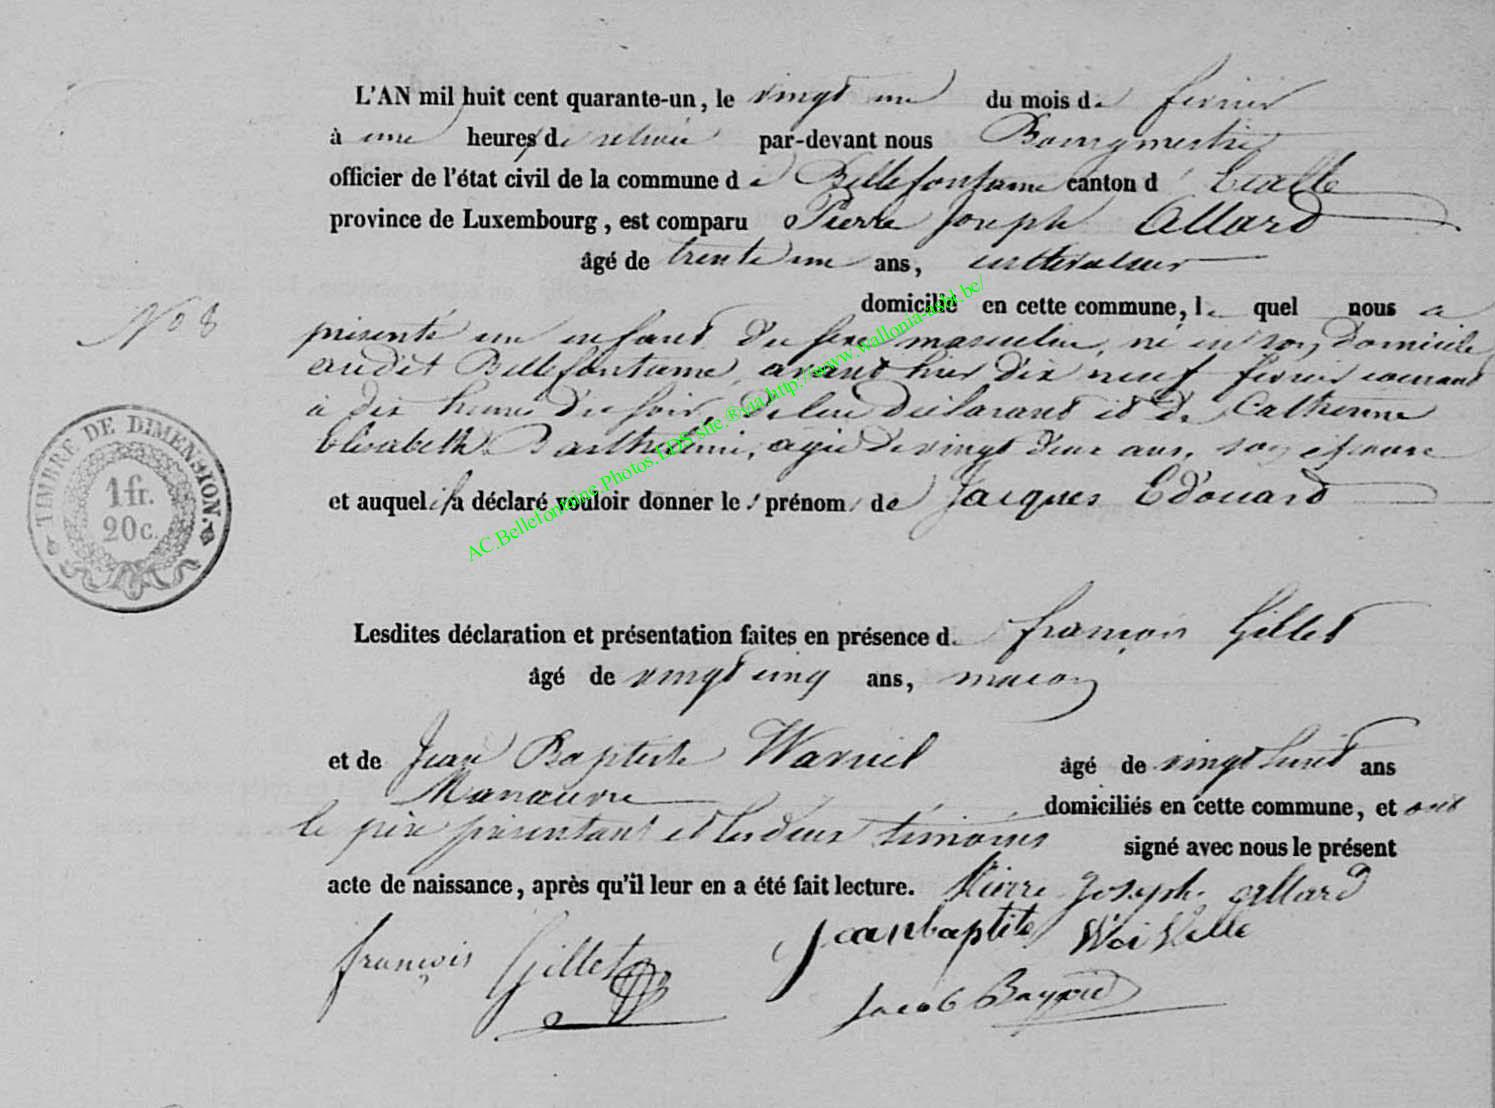 L'AN mil huit cent quarante-un, le vingt un du mois de fevrier
à une heures de relevée par-devant nous Bourgmestre
officier de l'état civil de la commune de Bellefontaine canton d'Etalle
province de Luxembourg, est comparu Pierre Joseph Allard
âgé de trente un ans, cultivateur
domicilié en cette commune, lequel nous a
N° 8
présenté un enfant du sexe masculin, né en son domicile
audit Bellefontaine, avant hier dix neuf fevrier courant
à dix heures du soir, de lui déclarant et de Catherine
Elisabeth Barthelemi, agée de vingt deux ans, son epouse
et auquel il a déclaré vouloir donner les prénoms de Jacques Edouard
TIMBRE DE DIMENSION.
1 fr.
20 c.
AC.Bellefontaine.Photos.LDS site.®via.http://www.wallonia-asbl.be/
Lesdites déclaration et présentation faites en présence de françois Gillet
âgé de vingt cinq ans, macon
et de Jean Baptiste âgé de vingt huit ans
Manœuvre domiciliés en cette commune, et ont
le père présentant et les deux témoins signé avec nous le présent
acte de naissance, après qu'il leur en a été fait lecture. Pierre Joseph allard
françois Gillet Jean baptite
Jacob